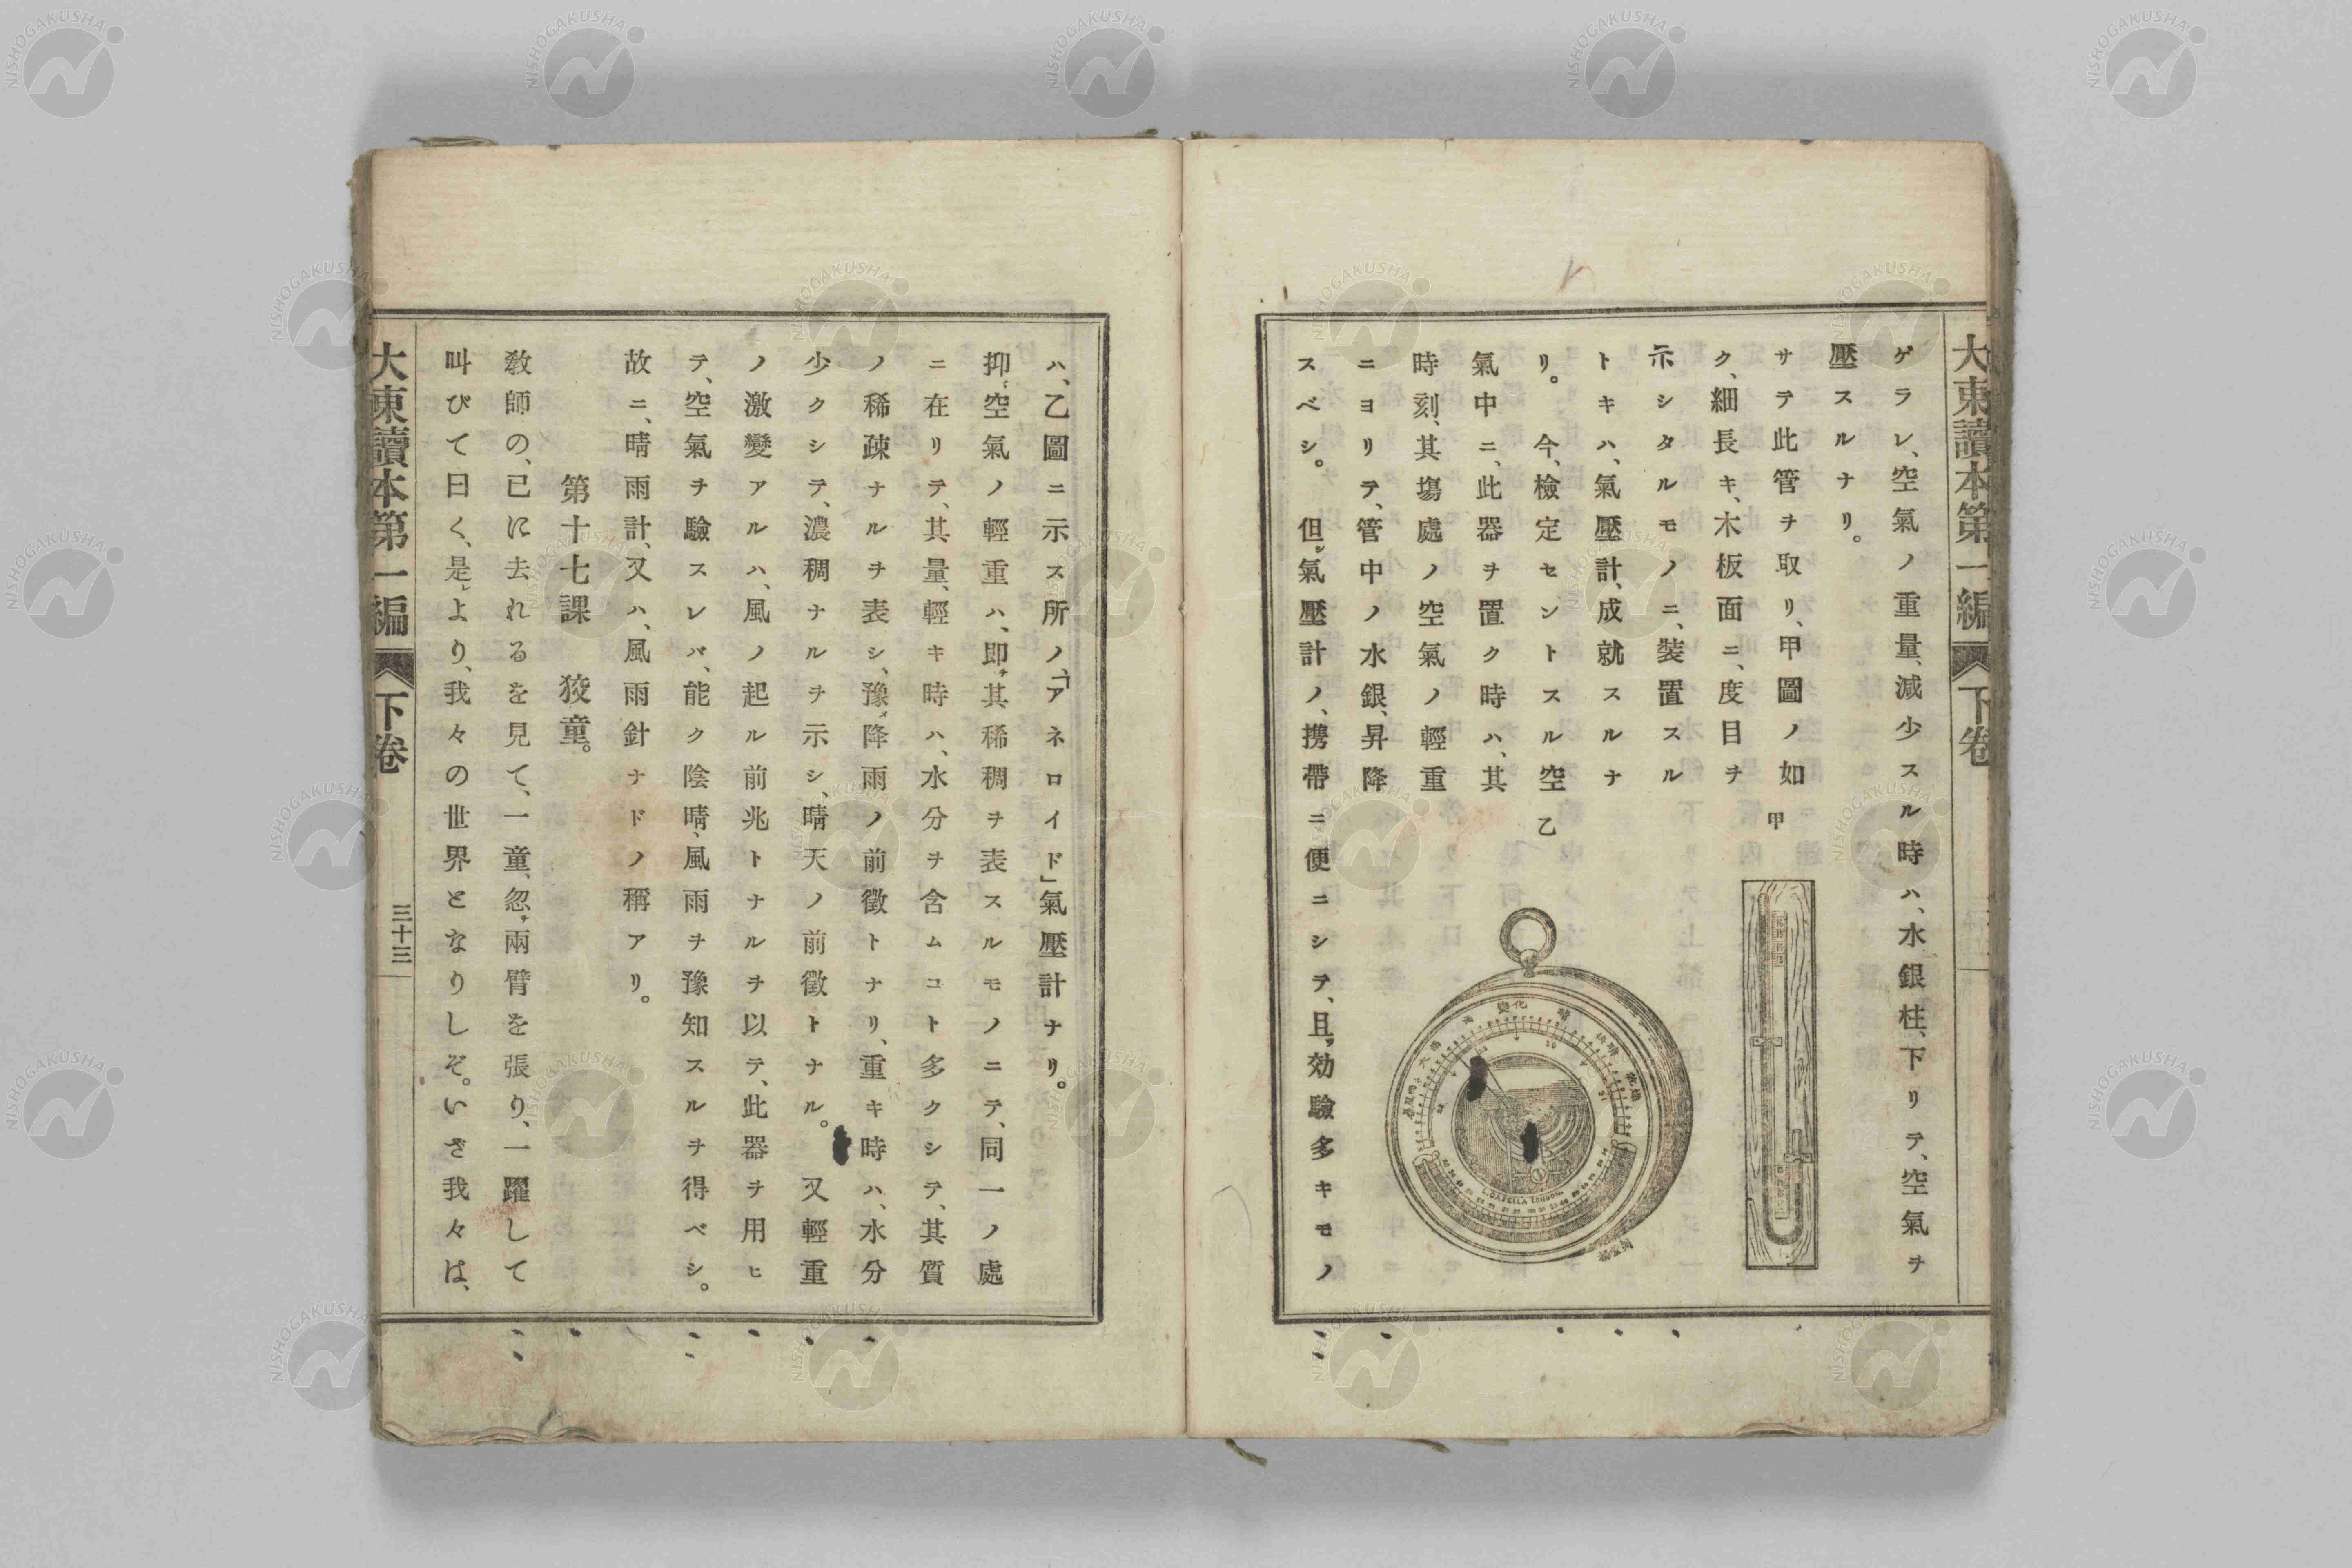 大東讀本第一編 下卷
ゲラレ、空氣ノ重量、減少スル時ハ、水銀柱、下リテ、空氣ヲ
壓スルナリ。
サテ此管ヲ取リ、甲圖ノ如
ク、細長キ、木板面ニ、度目ヲ
示シタルモノニ、裝置スル
トキハ、氣壓計、成就スルナ
リ。 今、檢定セントスル空
氣中ニ、此器ヲ置ク時ハ、其
時刻、其塲處ノ空氣ノ輕重
ニヨリテ、管中ノ水銀、昇降
スベシ。 但シ氣壓計ノ、携帶ニ便ニシテ、且ツ効驗多キモノ
甲
乙
L.CASELLA LONDON.
ハ、乙圖ニ示ス所ノ、「アネロイド」氣壓計ナリ。
抑〻空氣ノ輕重ハ、即チ其稀稠ヲ表スルモノニテ、同一ノ處
ニ在リテ、其量、輕キ時ハ、水分ヲ含ムコト多クシテ、其質
ノ稀疎ナルヲ表シ、豫メ降雨ノ前徵トナリ、重キ時ハ、水分
少クシテ、濃稠ナルヲ示シ、晴天ノ前徵トナル。 又輕重
ノ激變アルハ、風ノ起ル前兆トナルヲ以テ、此器ヲ用ヒ
テ、空氣ヲ驗スレバ、能ク陰晴、風雨ヲ豫知スルヲ得ベシ。
故ニ、晴雨計、又ハ、風雨針ナドノ稱アリ。
第十七課 狡童。
教師の、已に去れるを見て、一童、忽チ兩臂を張り、一躍して
叫びて曰く、是レより、我々の世界となりしぞ。いざ我々は、
大東讀本第一編 下卷 三十三
NISHOGAKUSHA